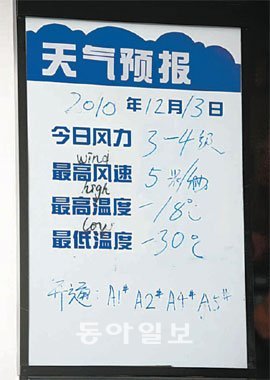 天气预报
2010 年 12月 13日
今日风力 3-4级
wind
最高风速 5米/秒
high
最高温度 -18℃
low
最低温度 -30℃
开通: A1# A2# A4# A5#
동아일보